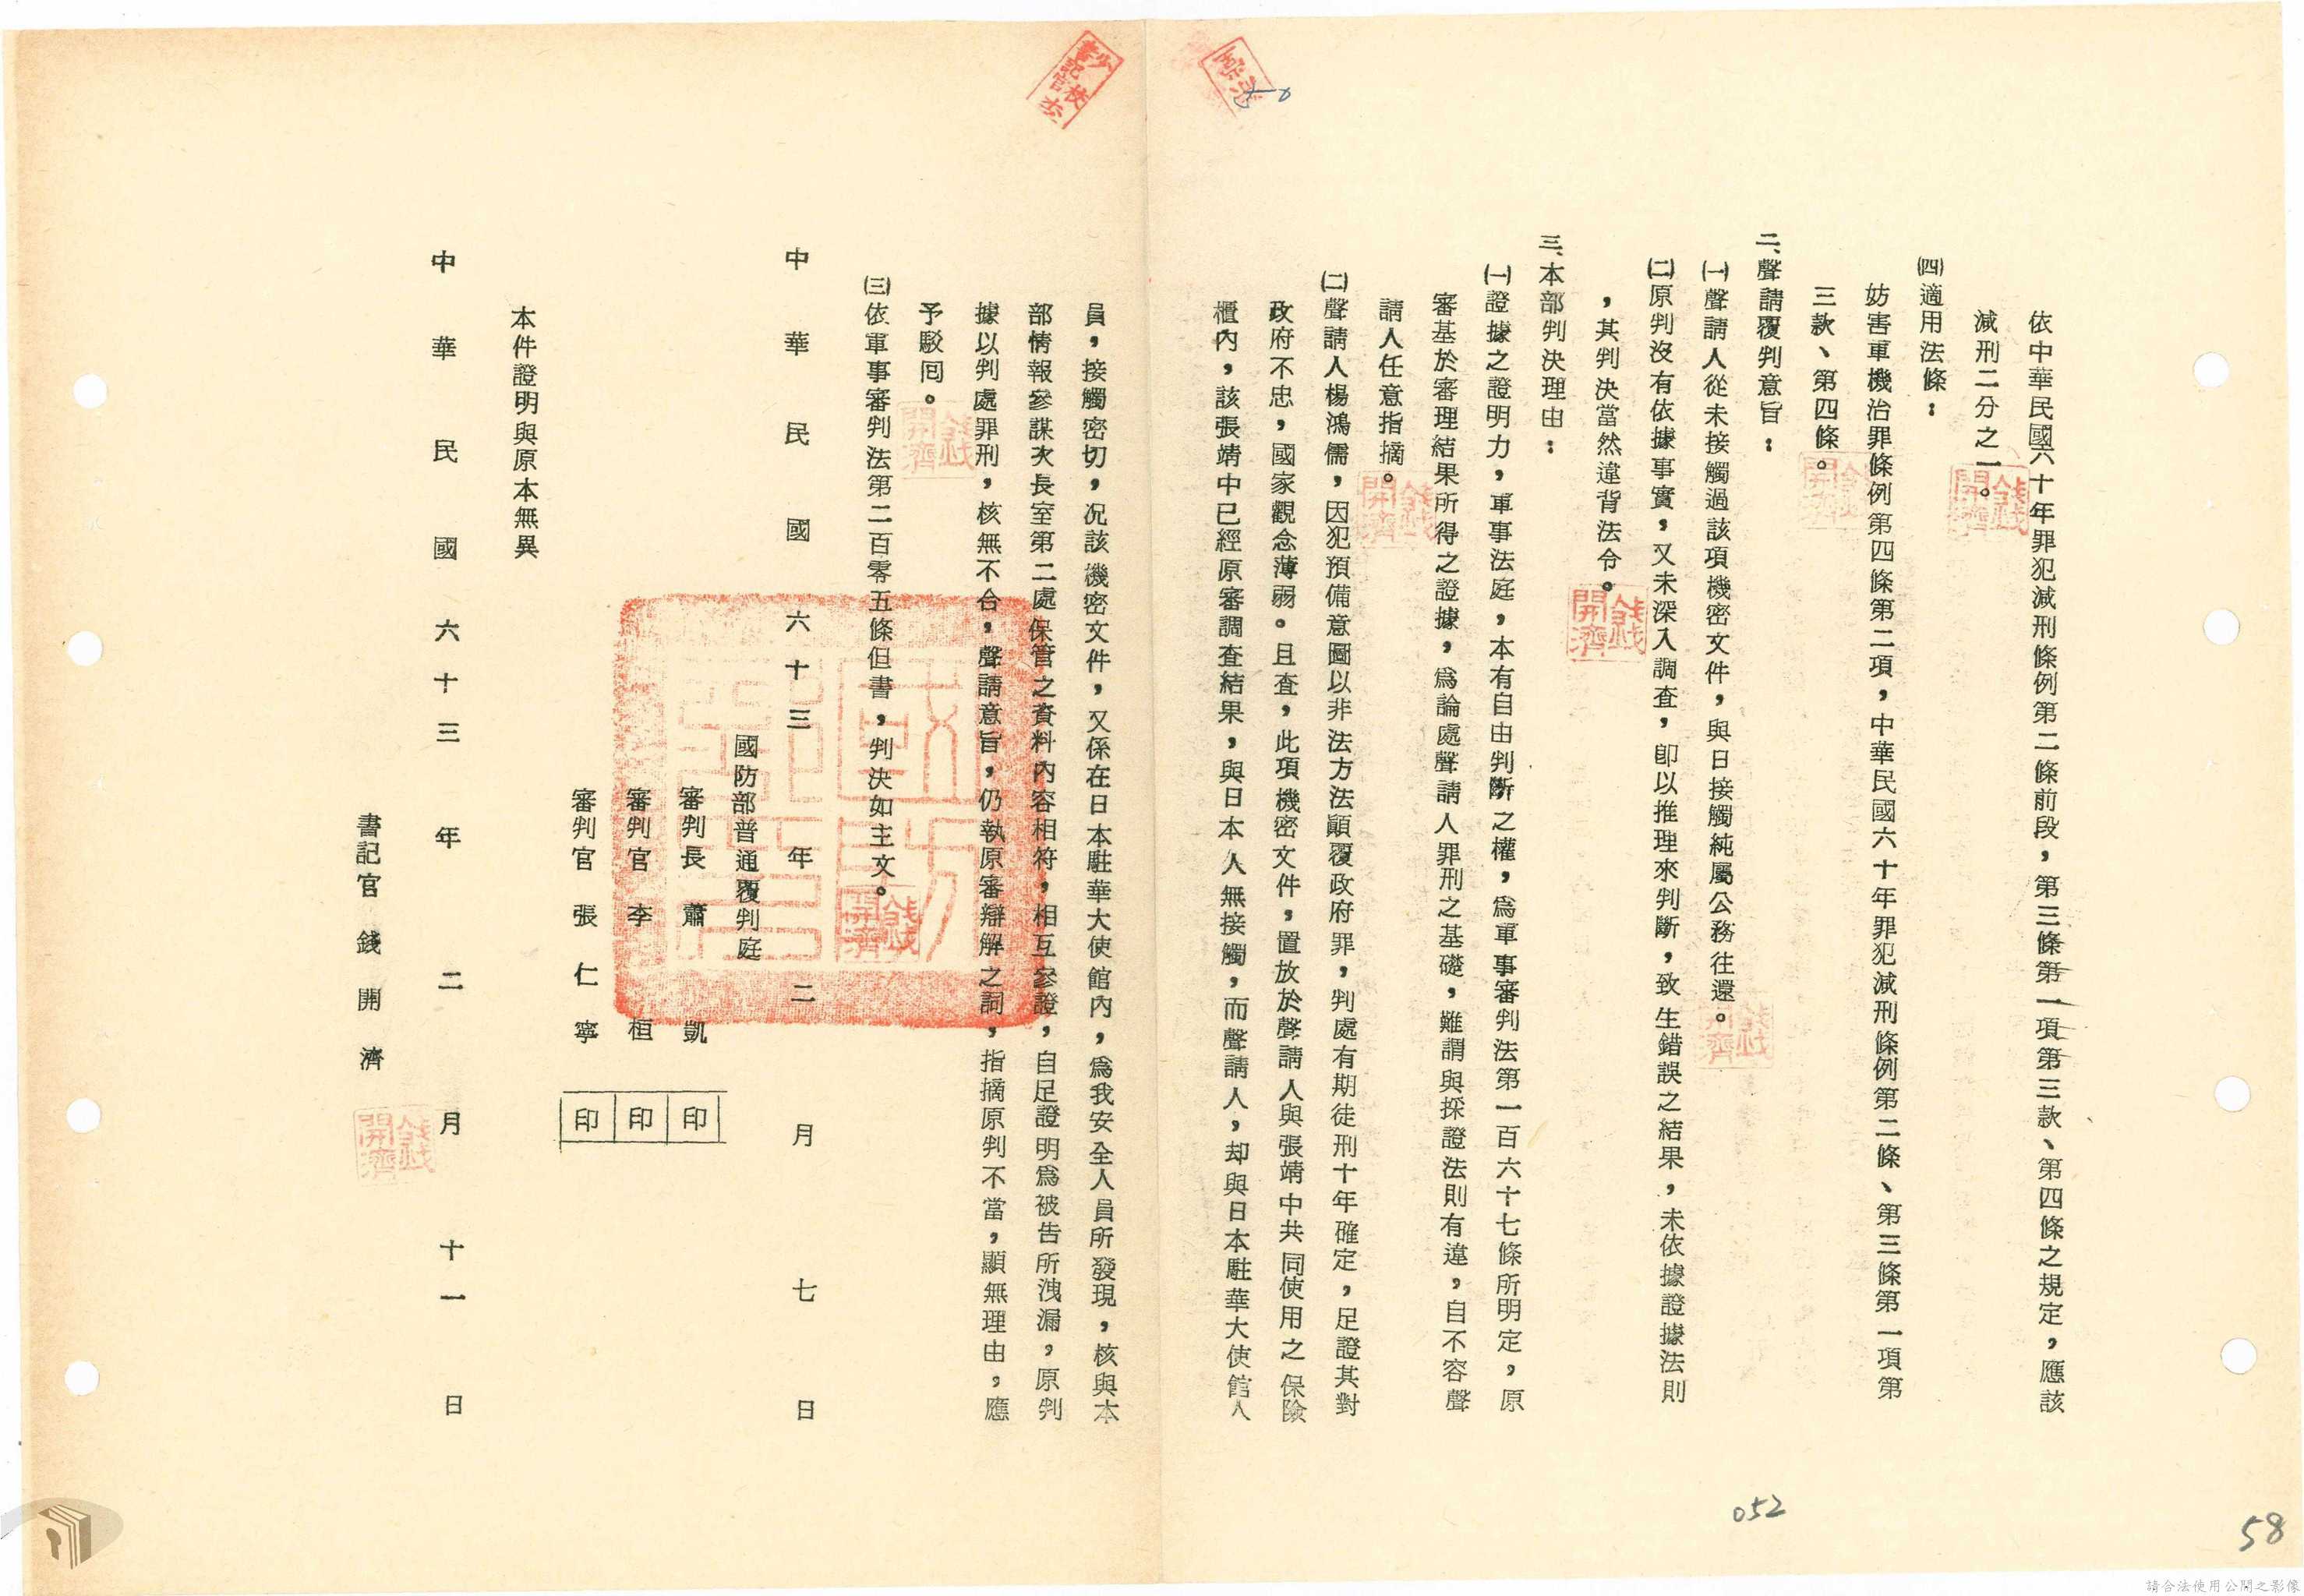 依中華民國六十年罪犯減刑條例第二條前段，第三條第一項第三款、第四條之規定，應該
減刑二分之一。
㈣適用法條：
妨害軍機治罪條例第四條第二項，中華民國六十年罪犯減刑條例第二條、第三條第一項第
三款、第四條。
二、聲請覆判意旨：
㈠聲請人從未接觸過該項機密文件，與日接觸純屬公務往還。
㈡原判沒有依據事實，又未深入調查，卽以推理來判斷，致生錯誤之結果，未依據證據法則
，其判決當然違背法令。
三、本部判決理由：
㈠證據之證明力，軍事法庭，本有自由判斷之權，爲軍事審判法第一百六十七條所明定，原
審基於審理結果所得之證據，爲論處聲請人罪刑之基礎，難謂與採證法則有違，自不容聲
請人任意指摘。
㈡聲請人楊鴻儒，因犯預備意圖以非法方法顚覆政府罪，判處有期徒刑十年確定，足證其對
政府不忠，國家觀念薄弱。且查，此項機密文件，置放於聲請人與張靖中共同使用之保險
櫃內，該張靖中已經原審調查結果，與日本人無接觸，而聲請人，却與日本駐華大使館人
員，接觸密切，况該機密文件，又係在日本駐華大使館內，爲我安全人員所發現，核與本
部情報參謀次長室第二處保管之資料內容相符，相互參證，自足證明爲被告所洩漏，原判
據以判處罪刑，核無不合，聲請意旨，仍執原審辯解之詞，指摘原判不當，顯無理由，應
予駁回。
㈢依軍事審判法第二百零五條但書，判決如主文。
中華民國六十三年二月七日
國防部普通覆判庭
審判長 蕭 凱 印
審判官 李 桓 印
審判官 張仁寧 印
本件證明與原本無異
中華民國六十三年二月十一日
書記官 錢開濟
錢開濟
50
052
58
請合法使用公開之影像